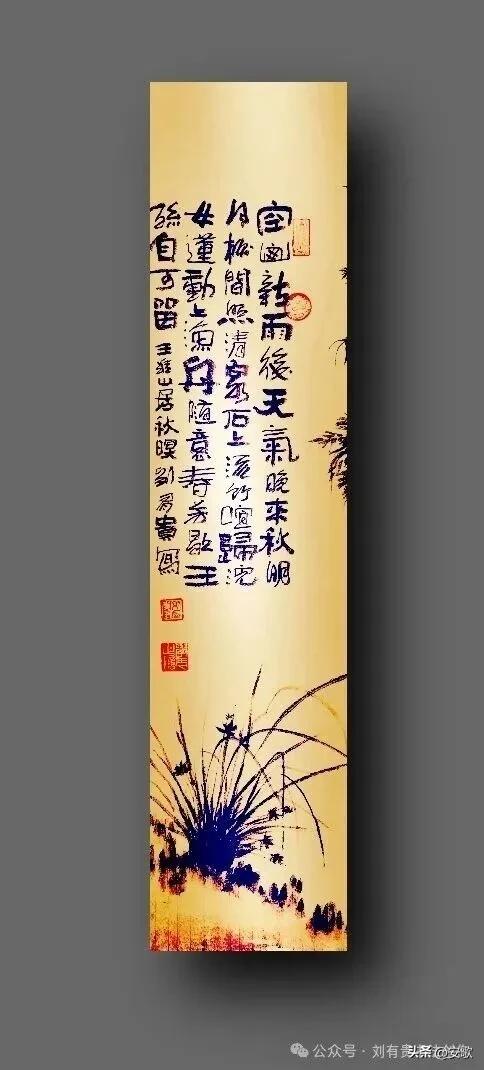 空山新雨後天氣晚来秋明
月松間照清泉石上流竹喧歸浣
女蓮動上漁舟隨意春芳歇王
孫自可留 王維山居秋暝 劉有貴寫
公众号 · 刘有贵
头条 @安歌